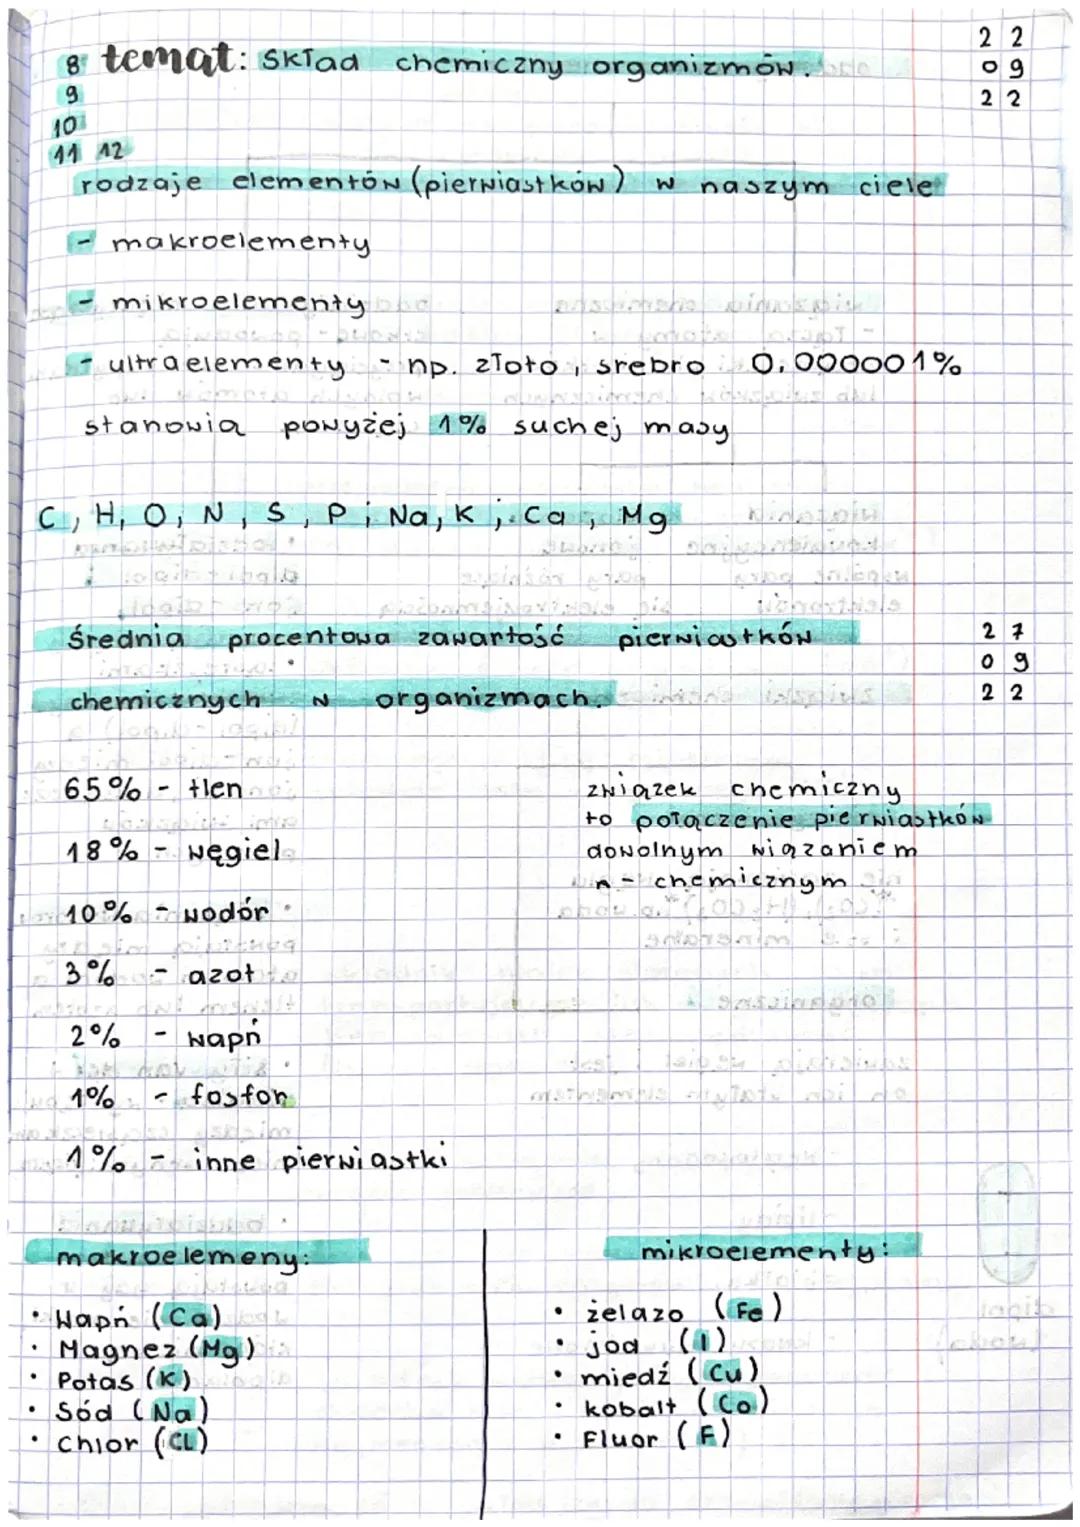 8 temat: Skład chemiczny organizmów.
2 2
0 9
2 2
9
10
11 12
rodzaje elementów (pierwiastków) w naszym ciele
- makroelementy
- mikroelementy
- ultraelementy - np. złoto, srebro 0,000001%
stanowią powyżej 1% suchej masy
C, H, O, N, S, P, Na, K, Ca, Mg
Średnia procentowa zawartość pierwiastków
chemicznych w organizmach.
2 7
0 9
2 2
65% - tlen
18% - węgiel
10% - wodór
3% - azot
2% - wapń
1% - fosfor
1% - inne pierwiastki
związek chemiczny
to połączenie pierwiastków
dowolnym wiązaniem
- chemicznym
makroelemeny:
• Wapń (Ca)
• Magnez (Mg)
• Potas (K)
• Sód (Na)
• Chlor (CL)
mikroelementy:
• żelazo (Fe)
• jod (I)
• miedź (Cu)
• kobalt (Co)
• Fluor (F)